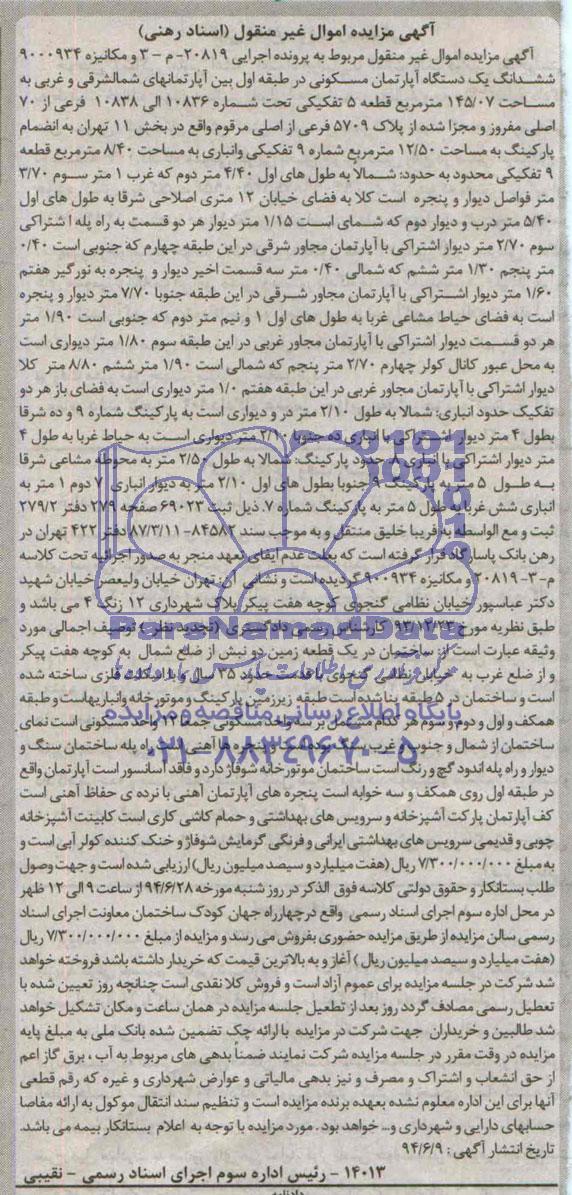 آگهی مزایده اموال غیر منقول (اسناد رهنی)
آگهی مزایده اموال غیر منقول مربوط به پرونده اجرایی ۲۰۸۱۹- م - ۳ و مکانیزه ۹۰۰۰۹۳۴
ششدانگ یک دستگاه آپارتمان مسکونی در طبقه اول بین آپارتمانهای شمالشرقی و غربی به
مساحت ۱۴۵/۰۷ مترمربع قطعه ۵ تفکیکی تحت شماره ۱۰۸۳۶ الی ۱۰۸۳۸ فرعی از ۷۰
اصلی مفروز و مجزا شده از پلاک ۵۷۰۹ فرعی از اصلی مرقوم واقع در بخش ۱۱ تهران به انضمام
پارکینگ به مساحت ۱۲/۵۰ مترمربع شماره ۹ تفکیکی وانباری به مساحت ۸/۴۰ مترمربع قطعه
۹ تفکیکی محدود به حدود: شمالا به طول های اول ۴/۴۰ متر دوم که غرب ۱ متر سوم ۳/۷۰
متر فواصل دیوار و پنجره است کلا به فضای خیابان ۱۲ متری اصلاحی شرقا به طول های اول
۵/۴۰ متر درب و دیوار دوم که شمای است ۱/۱۵ متر دیوار هر دو قسمت به راه پله اشتراکی
سوم ۲/۷۰ متر دیوار اشتراکی با آپارتمان مجاور شرقی در این طبقه چهارم که جنوبی است ۰/۴۰
متر پنجم ۱/۳۰ متر ششم که شمالی ۰/۴۰ متر سه قسمت اخیر دیوار و پنجره به نورگیر هفتم
۱/۶۰ متر دیوار اشتراکی با آپارتمان مجاور شرقی در این طبقه جنوبا ۷/۷۰ متر دیوار و پنجره
است به فضای حیاط مشاعی غربا به طول های اول ۱ و نیم متر دوم که جنوبی است ۱/۹۰ متر
هر دو قسمت دیوار اشتراکی با آپارتمان مجاور غربی در این طبقه سوم ۱/۸۰ متر دیواری است
به محل عبور کانال کولر چهارم ۲/۷۰ متر پنجم که شمالی است ۱/۹۰ متر ششم ۸/۸۰ متر کلا
دیوار اشتراکی با آپارتمان مجاور غربی در این طبقه هفتم ۱/۰ متر دیواری است به فضای باز هر دو
تفکیک حدود انباری: شمالا به طول ۲/۱۰ متر در و دیواری است به پارکینگ شماره ۹ و ده شرقا
بطول ۴ متر دیوار اشتراکی با انباری ده جنوبا ۲/۱۰ متر دیواری است به حیاط غربا به طول ۴
متر دیوار اشتراکی با انباری ۸ حدود پارکینگ: شمالا به طول ۲/۵۰ متر به محوطه مشاعی شرقا
به طول ۵ متر به پارکینگ ۹ جنوبا بطول های اول ۲/۱۰ متر به دیوار انباری ۷ دوم ۱ متر به
انباری شش غربا به طول ۵ متر به پارکینگ شماره ۷. ذیل ثبت ۶۹۰۲۳ صفحه ۲۷۹ دفتر ۲۷۹/۲
ثبت و مع الواسطه به فریبا خلیق منتقل و به موجب سند ۸۴۵۸۲- ۸۷/۳/۱۱ دفتر ۴۲۲ تهران در
رهن بانک پاسارگاد قرار گرفته است که بعلت عدم ایفای تعهد منجر به صدور اجرائیه تحت کلاسه
م-۳- ۲۰۸۱۹ و مکانیزه ۹۰۰۹۳۴ گردیده است و نشانی آن: تهران خیابان ولیعصر خیابان شهید
دکتر عباسپور خیابان نظامی گنجوی کوچه هفت پیکر پلاک شهرداری ۱۲ زنگ ۴ می باشد و
طبق نظریه مورخ ۹۳/۱۲/۲۳ کارشناس رسمی دادگستری (تجدید نظر) توصیف اجمالی مورد
وثیقه عبارت است از: ساختمان در یک قطعه زمین دو نبش از ضلع شمال به کوچه هفت پیکر
و از ضلع غرب به خیابان نظامی گنجوی با قدمت حدود ۳۵ سال و با اسکلت فلزی ساخته شده
است و ساختمان در ۵ طبقه بنا شده است طبقه زیرزمین پارکینگ و موتورخانه وانباریهاست و طبقه
همکف و اول و دوم و سوم هر کدام مشتمل بر سه واحد مسکونی جمعا ۱۲ واحد مسکونی است نمای
ساختمان از شمال و جنوب و غرب سنگ بوده است و پنجره ها آهنی است راه پله ساختمان سنگ و
دیوار و راه پله اندود گچ و رنگ است ساختمان موتورخانه شوفاژ دارد و فاقد آسانسور است آپارتمان واقع
در طبقه اول روی همکف و سه خوابه است پنجره های آپارتمان آهنی با نرده ی حفاظ آهنی است
کف آپارتمان پارکت آشپزخانه و سرویس های بهداشتی و حمام کاشی کاری است کابینت آشپزخانه
چوبی و قدیمی سرویس های بهداشتی ایرانی و فرنگی گرمایش شوفاژ و خنک کننده کولر آبی است و
به مبلغ ۷/۳۰۰/۰۰۰/۰۰۰ ریال (هفت میلیارد و سیصد میلیون ریال) ارزیابی شده است و جهت وصول
طلب بستانکار و حقوق دولتی کلاسه فوق الذکر در روز شنبه مورخه ۹۴/۶/۲۸ از ساعت ۹ الی ۱۲ ظهر
در محل اداره سوم اجرای اسناد رسمی واقع در چهارراه جهان کودک ساختمان معاونت اجرای اسناد
رسمی سالن مزایده از طریق مزایده حضوری بفروش می رسد و مزایده از مبلغ ۷/۳۰۰/۰۰۰/۰۰۰ ریال
(هفت میلیارد و سیصد میلیون ریال ) آغاز و به بالاترین قیمت که خریدار داشته باشد فروخته خواهد
شد شرکت در جلسه مزایده برای عموم آزاد است و فروش کلا نقدی است چنانچه روز تعیین شده با
تعطیل رسمی مصادف گردد روز بعد از تعطیل جلسه مزایده در همان ساعت و مکان تشکیل خواهد
شد طالبین و خریداران جهت شرکت در مزایده با ارائه چک تضمین شده بانک ملی به مبلغ پایه
مزایده در وقت مقرر در جلسه مزایده شرکت نمایند ضمناً بدهی های مربوط به آب ، برق گاز اعم
از حق انشعاب و اشتراک و مصرف و نیز بدهی مالیاتی و عوارض شهرداری و غیره که رقم قطعی
آنها برای این اداره معلوم نشده بعهده برنده مزایده است و تنظیم سند انتقال موکول به ارائه مفاصا
حسابهای دارایی و شهرداری و... خواهد بود . مورد مزایده با توجه به اعلام بستانکار بیمه می باشد.
تاریخ انتشار آگهی : ۹۴/۶/۹
۱۴۰۱۳ - رئیس اداره سوم اجرای اسناد رسمی - نقیبی
ParsNamadData
پایگاه اطلاع رسانی مناقصه و مزایده
۰۲۱-۸۸۳۴۹۶۷۰-۵